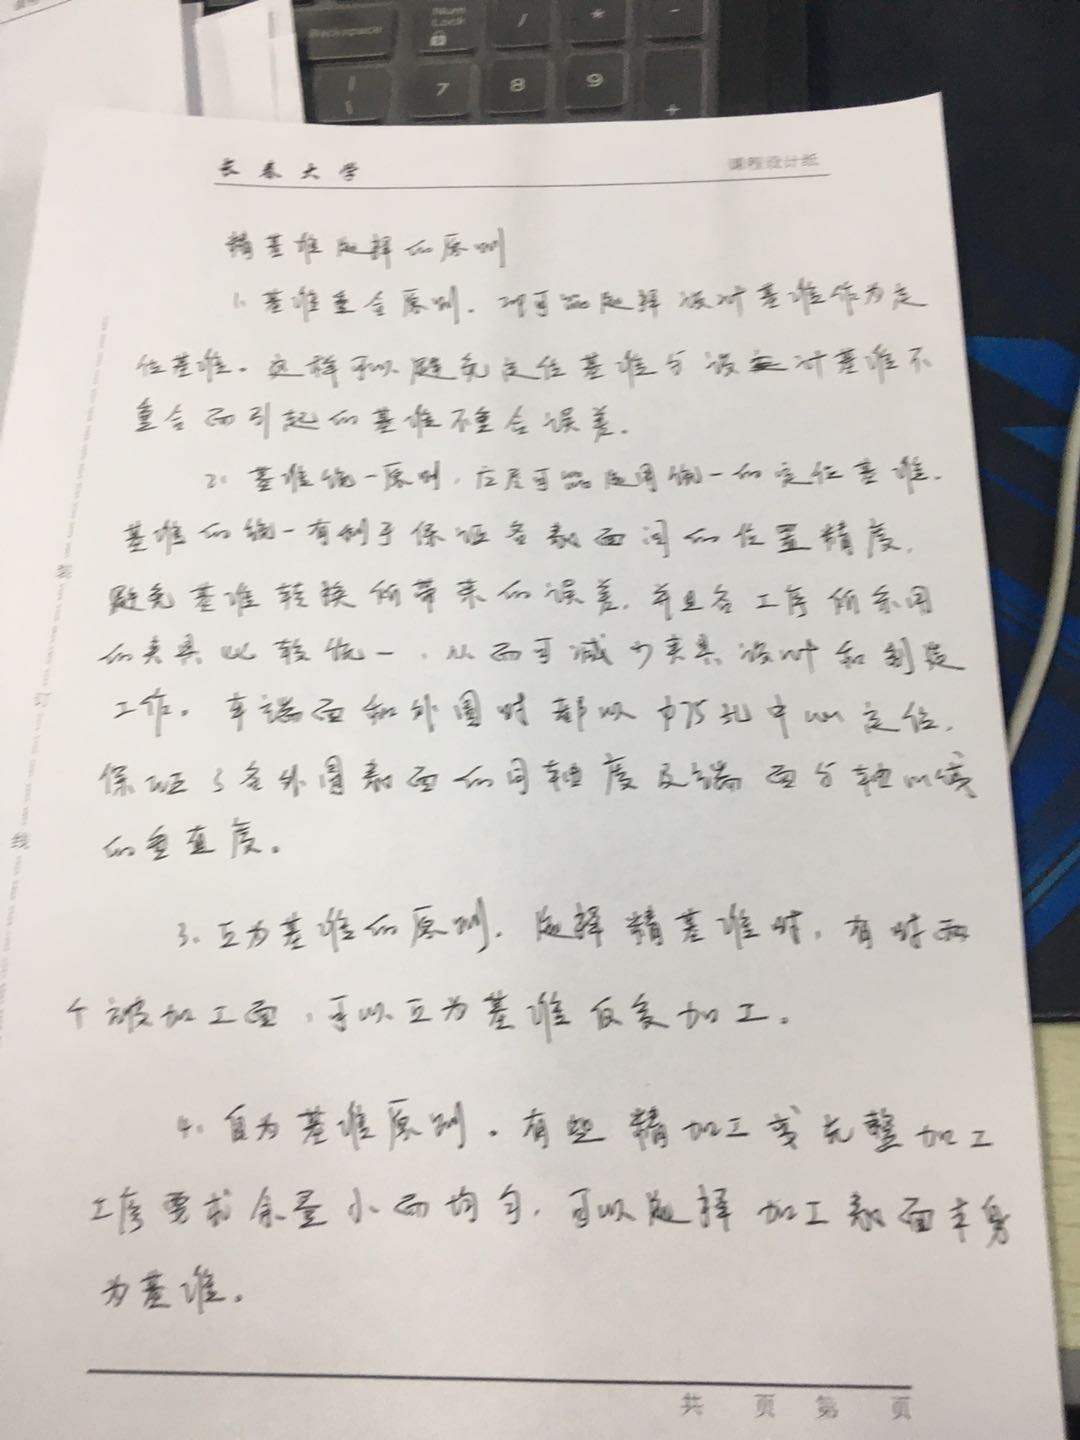 Backspace
Num Lock
/
*
-
7
8
9
+
长春大学
课程设计纸
精基准选择的原则
1. 基准重合原则. 尽可能选择设计基准作为定
位基准。这样可以避免定位基准与设计基准不
重合而引起的基准不重合误差.
2. 基准统一原则, 应尽可能选用统一的定位基准.
基准的统一有利于保证各表面间的位置精度,
避免基准转换所带来的误差, 并且各工序所采用
的夹具比较统一, 从而可减少夹具设计和制造
工作。车端面和外圆时都以φ75孔中心定位,
保证了各外圆表面的同轴度及端面与轴心线
的垂直度。
3. 互为基准的原则. 选择精基准时, 有时两
个被加工面, 可以互为基准反复加工。
4. 自为基准原则。有些精加工或光整加工
工序要求余量小而均匀, 可以选择加工表面本身
为基准。
共 页 第 页